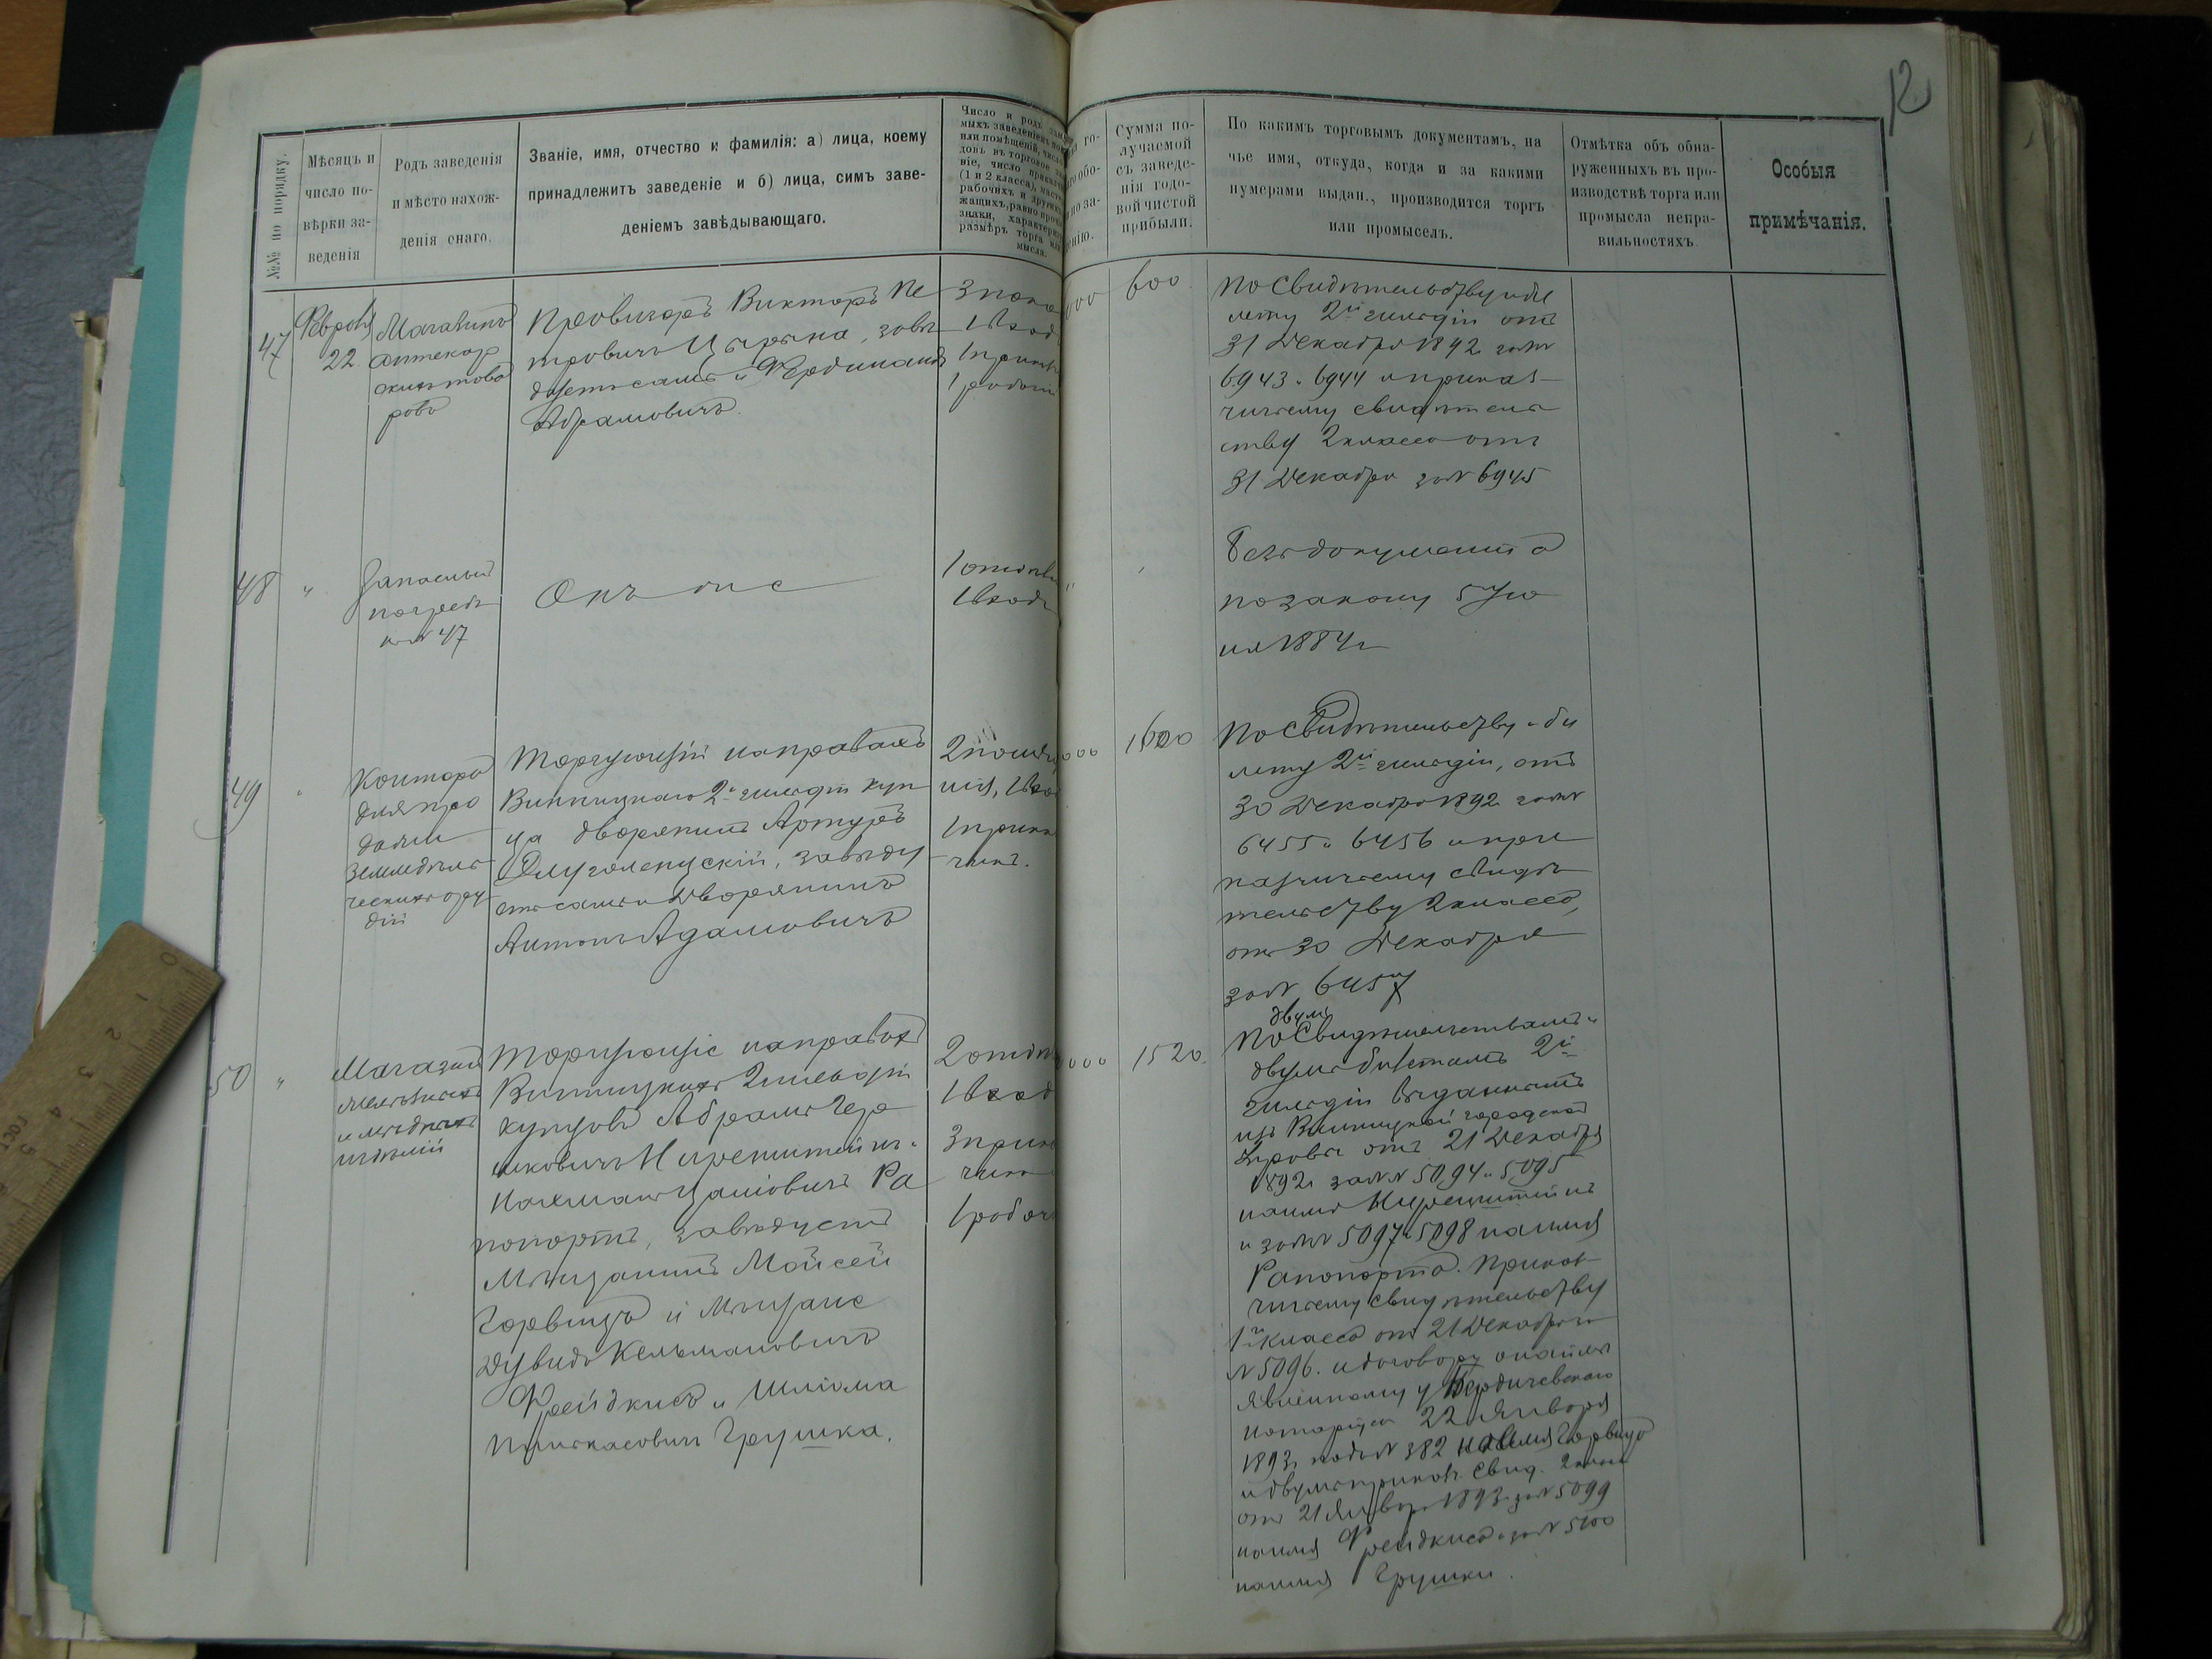 12
№№ по порядку.
Мѣсяцъ и
число по-
вѣрки за-
веденія
Родъ заведенія
и мѣсто нахож-
денія онаго.
Званіе, имя, отчество и фамилія: а) лица, коему
принадлежитъ заведеніе и б) лица, симъ заве-
деніемъ завѣдывающаго.
Число и родъ
мыхъ заведеніемъ
или помѣщеній, число
довъ въ торговое
віе, число
(1 и 2 класса),
рабочихъ и другихъ
жащихъ, равно
знаки,
размѣръ торга
мысла.
го-
обо-
за-
енію.
Сумма по-
лучаемой
съ заведе-
нія годо-
вой чистой
прибыли.
По какимъ торговымъ документамъ, на
чье имя, откуда, когда и за какими
нумерами выдан., производится торгъ
или промыселъ.
Отмѣтка объ обна-
руженныхъ въ про-
изводствѣ торга или
промысла непра-
вильностяхъ
Особыя
примѣчанія.
47
Февраля
22
Магазинъ
аптекар
скихъ това
ровъ
Провизоръ Викторъ Пе
тровичъ завѣ
детъ самъ и Фердинандъ
Абрамовичъ
1 вход
600
По Свидѣтельству и би
лету 2й гильдіи отъ
31 Декабря 1892 за №
6943 и 6944 и приказ-
чичьему свидѣтель
ству 2 класса отъ
31 Декабря за № 6945
48
"
Запасный
погребъ
къ № 47
Онъ же
1 входъ
Безъ документа
по закону 5 Ію
ня 1884 г
49
"
Контора
для про
дажи
земледѣль
ческихъ ору
дій
Торгующій на правахъ
Винницкаго 2й гильдіи куп
ца дворянинъ Артуръ
завѣду
етъ самъ и Дворянинъ
Антонъ Адамовичъ
2 помѣще
нія, 1 вхо
1 прика
чикъ.
000
1600
По Свидѣтельству и би
лету 2й гильдіи, отъ
30 Декабря 1892 за №
6455 и 6456 и при
казчичьему свидѣ
тельству 2 класса,
отъ 30 Декабря
за № 6457
50
"
Магазинъ
желѣзныхъ
и мѣдныхъ
издѣлій
Торгующіе на правахъ
Винницкихъ 2 гильдіи
купцовъ Абрамъ Гер
шковичъ Нирештейнъ и
Нахманъ Ра
попортъ, завѣдуетъ
Мѣщанинъ Мойсей
Горвицъ и Мѣщане
Дувидъ Кельмановичъ
Фрейдкисъ и Шліома
Пинкасовичъ Грушка.
2 отдѣ
1 вход
3 прик
чика
1 рабоч
000
1520
двумъ
По Свидѣтельствамъ и
двумъ билетамъ 2й
гильдіи выданнымъ
изъ Винницкой городской
Управы отъ 21 Декабря
1892 за № 5094 и 5095
на имя Нирештейнъ
и за № 5097 и 5098 на имя
Рапопорта. Приказ-
чичьему свидѣтельству
1го класса отъ 21 Декабря за
№ 5096. и договору о наймѣ
явленному у Бердичевскаго
нотаріуса 22 Января
1893 подъ № 382 на имя Горвица
и двумъ приказ. Свид. 2 класса
отъ 21 Января 1893 за № 5099
на имя Фрейдкиса и за № 5100
на имя Грушки.